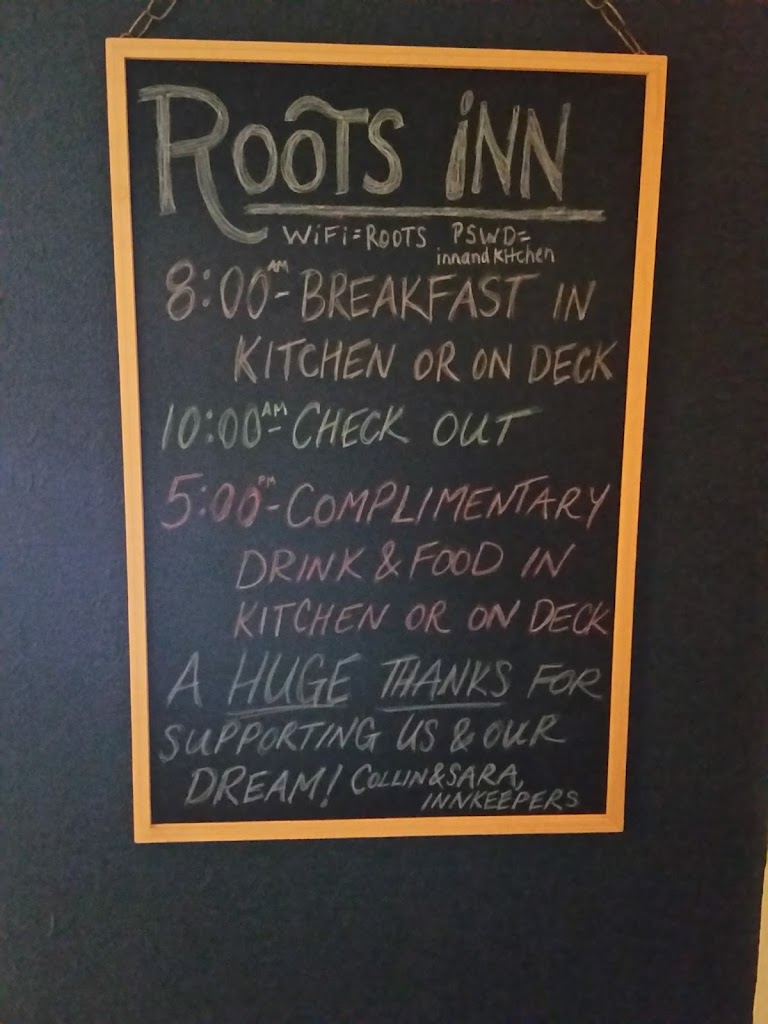 ROOTS iNN
WiFi=ROOTS PSWD=
innandkitchen
8:00AM- BREAKFAST IN
KITCHEN OR ON DECK
10:00AM- CHECK OUT
5:00PM- COMPLIMENTARY
DRINK & FOOD IN
KITCHEN OR ON DECK
A HUGE THANKS FOR
SUPPORTING US & OUR
DREAM! COLLIN & SARA,
INNKEEPERS